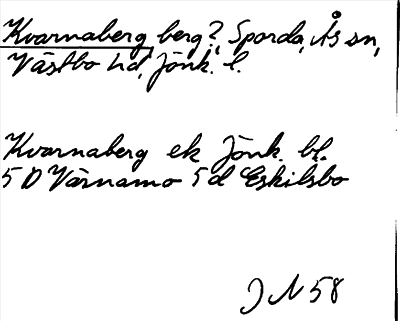 Kvarnaberg berg?, Sporda, Ås sn,
Västbo hd, Jönk. l.
Kvarnaberg ek Jönk. bl.
5 D Värnamo 5 d Eskilsbo
J N 58